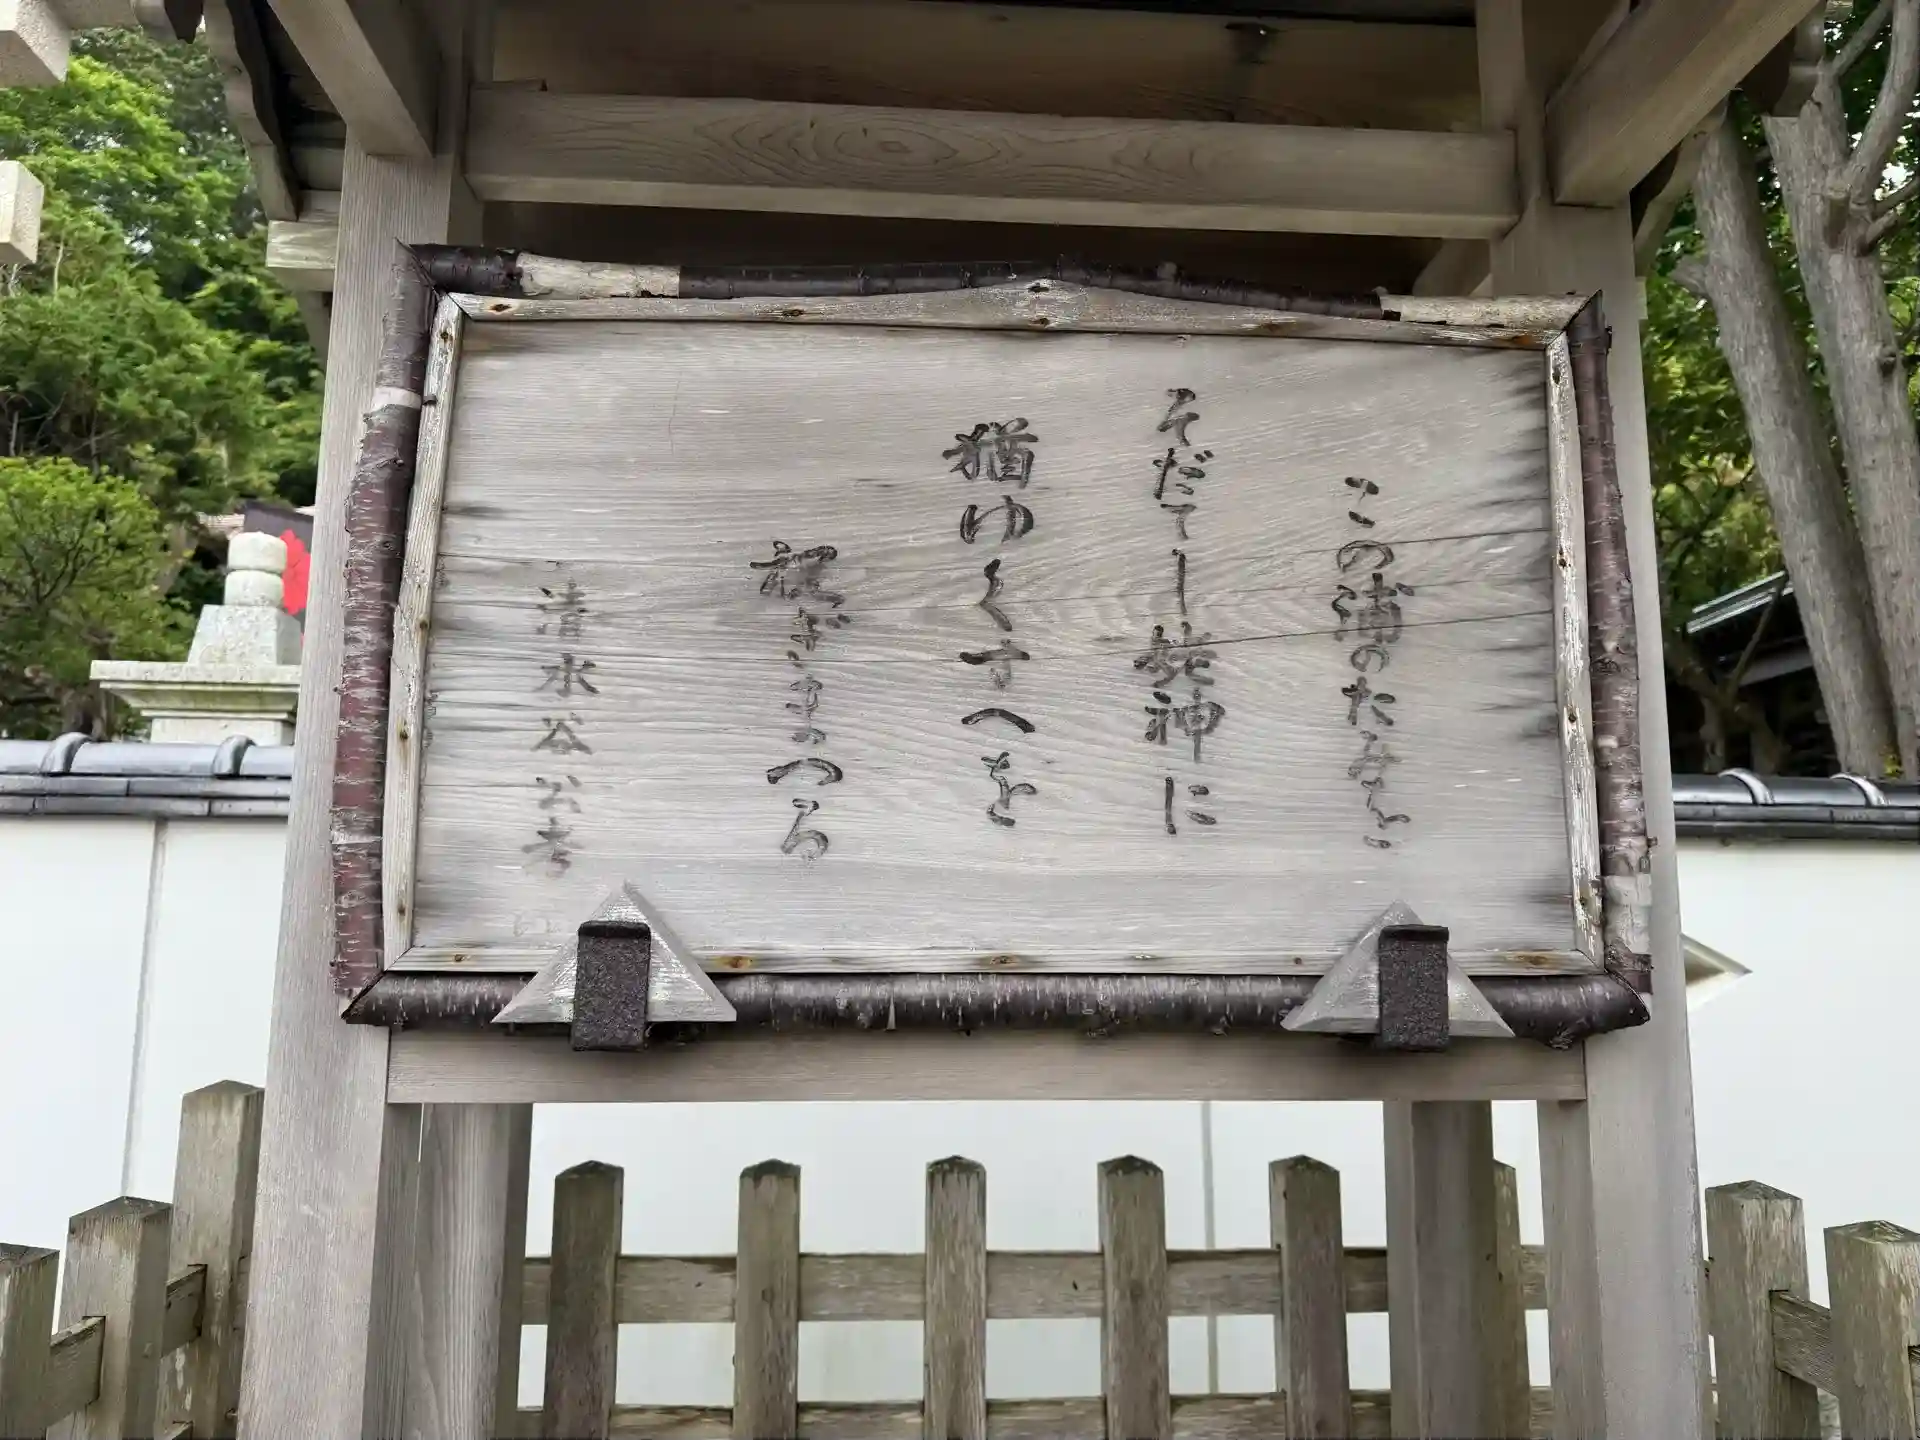 この浦のたみを
そだてし姥神に
猶ゆくすへを
祝ぎまつる
清水谷公考